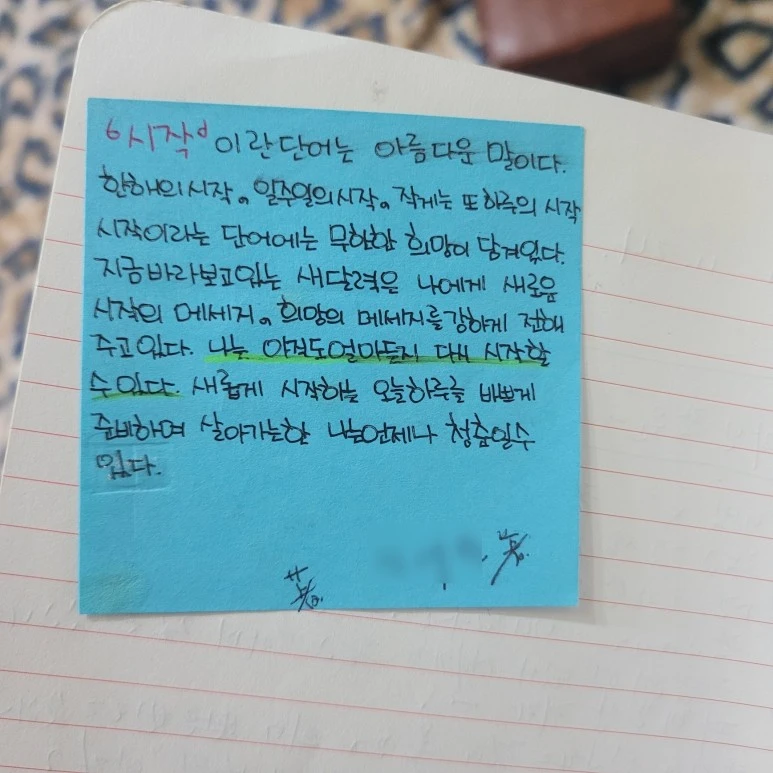 '시작' 이란단어는 아름다운 말이다.
한해의시작。일주일의시작。작게는 또하루의 시작
시작이라는 단어에는 무한한 희망이 담겨있다.
지금바라보고있는 새달력은 나에게 새로운
시작의 메세지。희망의 메세지를강하게 전해
주고있다. 나는 아직도얼마든지 다시 시작할
수있다. 새롭게 시작하는 오늘하루를 바쁘게
준비하며 살아가는한 나는언제나 청춘일수
있다.